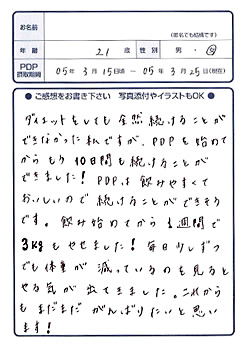 お名前
(匿名でも結構です)
年齢 21 歳 性別 男・女
PDP摂取期間 05年 3月 15日頃 ― 05年 3月 25日(現在)
● ご感想をお書き下さい 写真添付やイラストもOK ●
ダイエットをしても全然続けることが
できなかった私ですが、PDPを始めて
からもう10日間も続けることが
できました！PDPは飲みやすくて
おいしいので続けることができそう
です。飲み始めてから1週間で
3kgもやせました！毎日少しずつ
でも体重が減っているのを見ると
やる気が出てきました。これから
もまだまだがんばりたいと思い
ます！